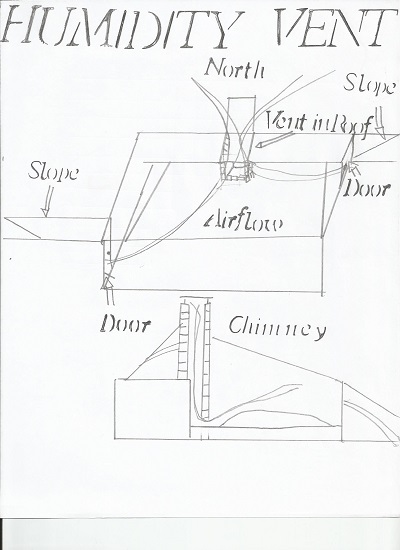 HUMIDITY VENT
North
Slope
Vent in Roof
Slope
Door
Airflow
Door
Chimney